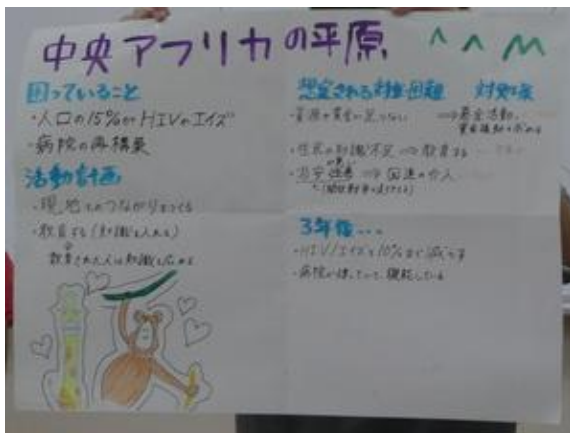 中央アフリカの平原
困っていること
・人口の15%がHIVやエイズ
・病院の再構築
活動計画
・現地でのつながりをつくる
・教育する(知識を入れる)
教育された人は知識を広める
想定される対象困難 対処策
・資源や資金が足りない ⇒募金活動、
・住民の知識不足 ⇒教育する
・治安 ⇒国連の介入
3年後...
・HIV/エイズを10%まで減らす
・病院が建っていて、機能している